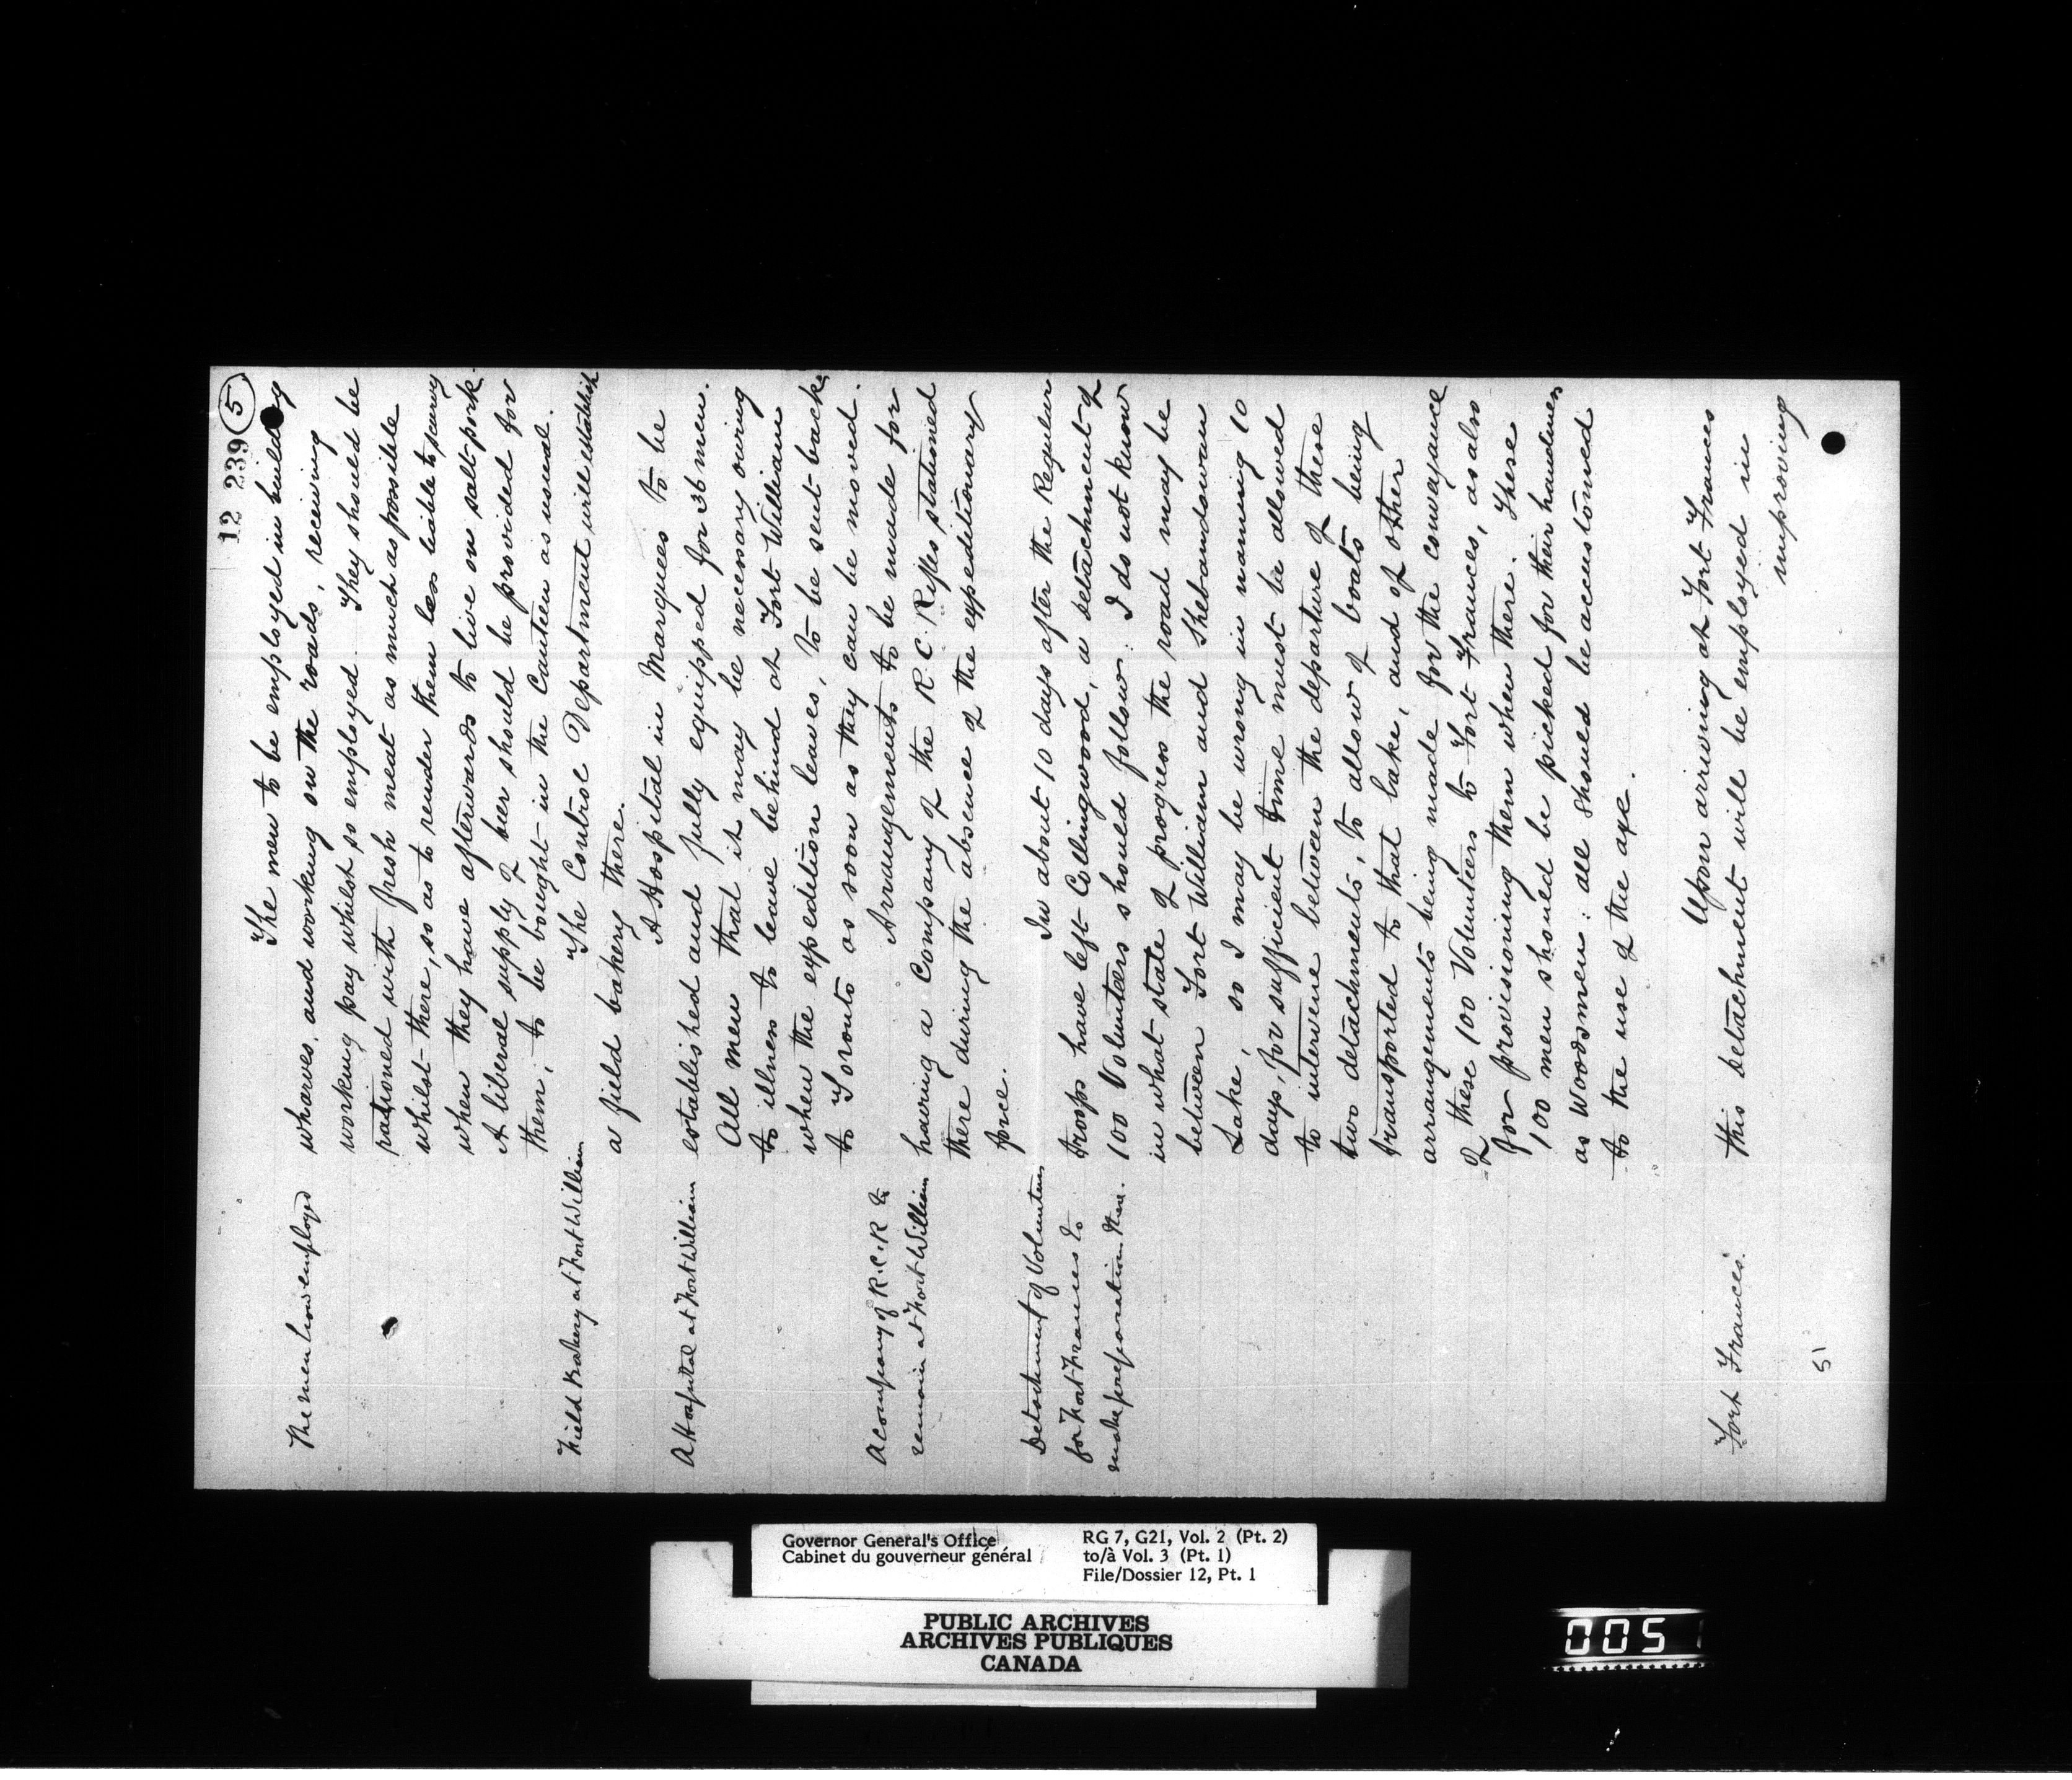 12 239 5
The men to be employed in building
The men how employed
wharves, and working on the roads, receiving
working pay whilst so employed. They should be
rationed with fresh meat as much as possible
whilst there, so as to render them less liable to scurvy
when they have afterwards to live on salt pork.
A liberal supply of beer should be provided for
them; to be bought in the Canteen as usual.
Field Bakery at Fort William
The Control Department will establish
a field bakery there.
A Hospital in Marquees to be
A Hospital at Fort William
established and fully equipped for 36 men.
All men that it may be necessary owing
to illness to leave behind at Fort William
when the expedition leaves, to be sent back
to Toronto as soon as they can be moved.
Arrangements to be made for
A company of R.C.R to
remain at Fort William
having a Company of the R.C. Rifles stationed
there during the absence of the expeditionary
force.
In about 10 days after the Regular
Detachment of Volunteers
for Fort Frances to
make preparation there.
troops have left Collingwood, a detachment of
100 Volunteers should follow: I do not know
in what state of progress the road may be
between Fort William and Shebandowan
Lake, so I may be wrong in naming 10
days, for sufficient time must be allowed
to intervene between the departure of these
two detachments, to allow of boats being
transported to that lake, and of other
arrangements being made for the conveyance
of these 100 Volunteers to Fort Frances, as also
for provisioning them when there. These
100 men should be picked for their handiness
as Woodsmen: all should be accustomed
to the use of the axe.
Upon arriving at Fort Frances
Fort Frances.
this detachment will be employed in
improving
5
Governor General's Office
Cabinet du gouverneur général
RG 7, G21, Vol. 2 (Pt. 2)
to/à Vol. 3 (Pt. 1)
File/Dossier 12, Pt. 1
PUBLIC ARCHIVES
ARCHIVES PUBLIQUES
CANADA
005